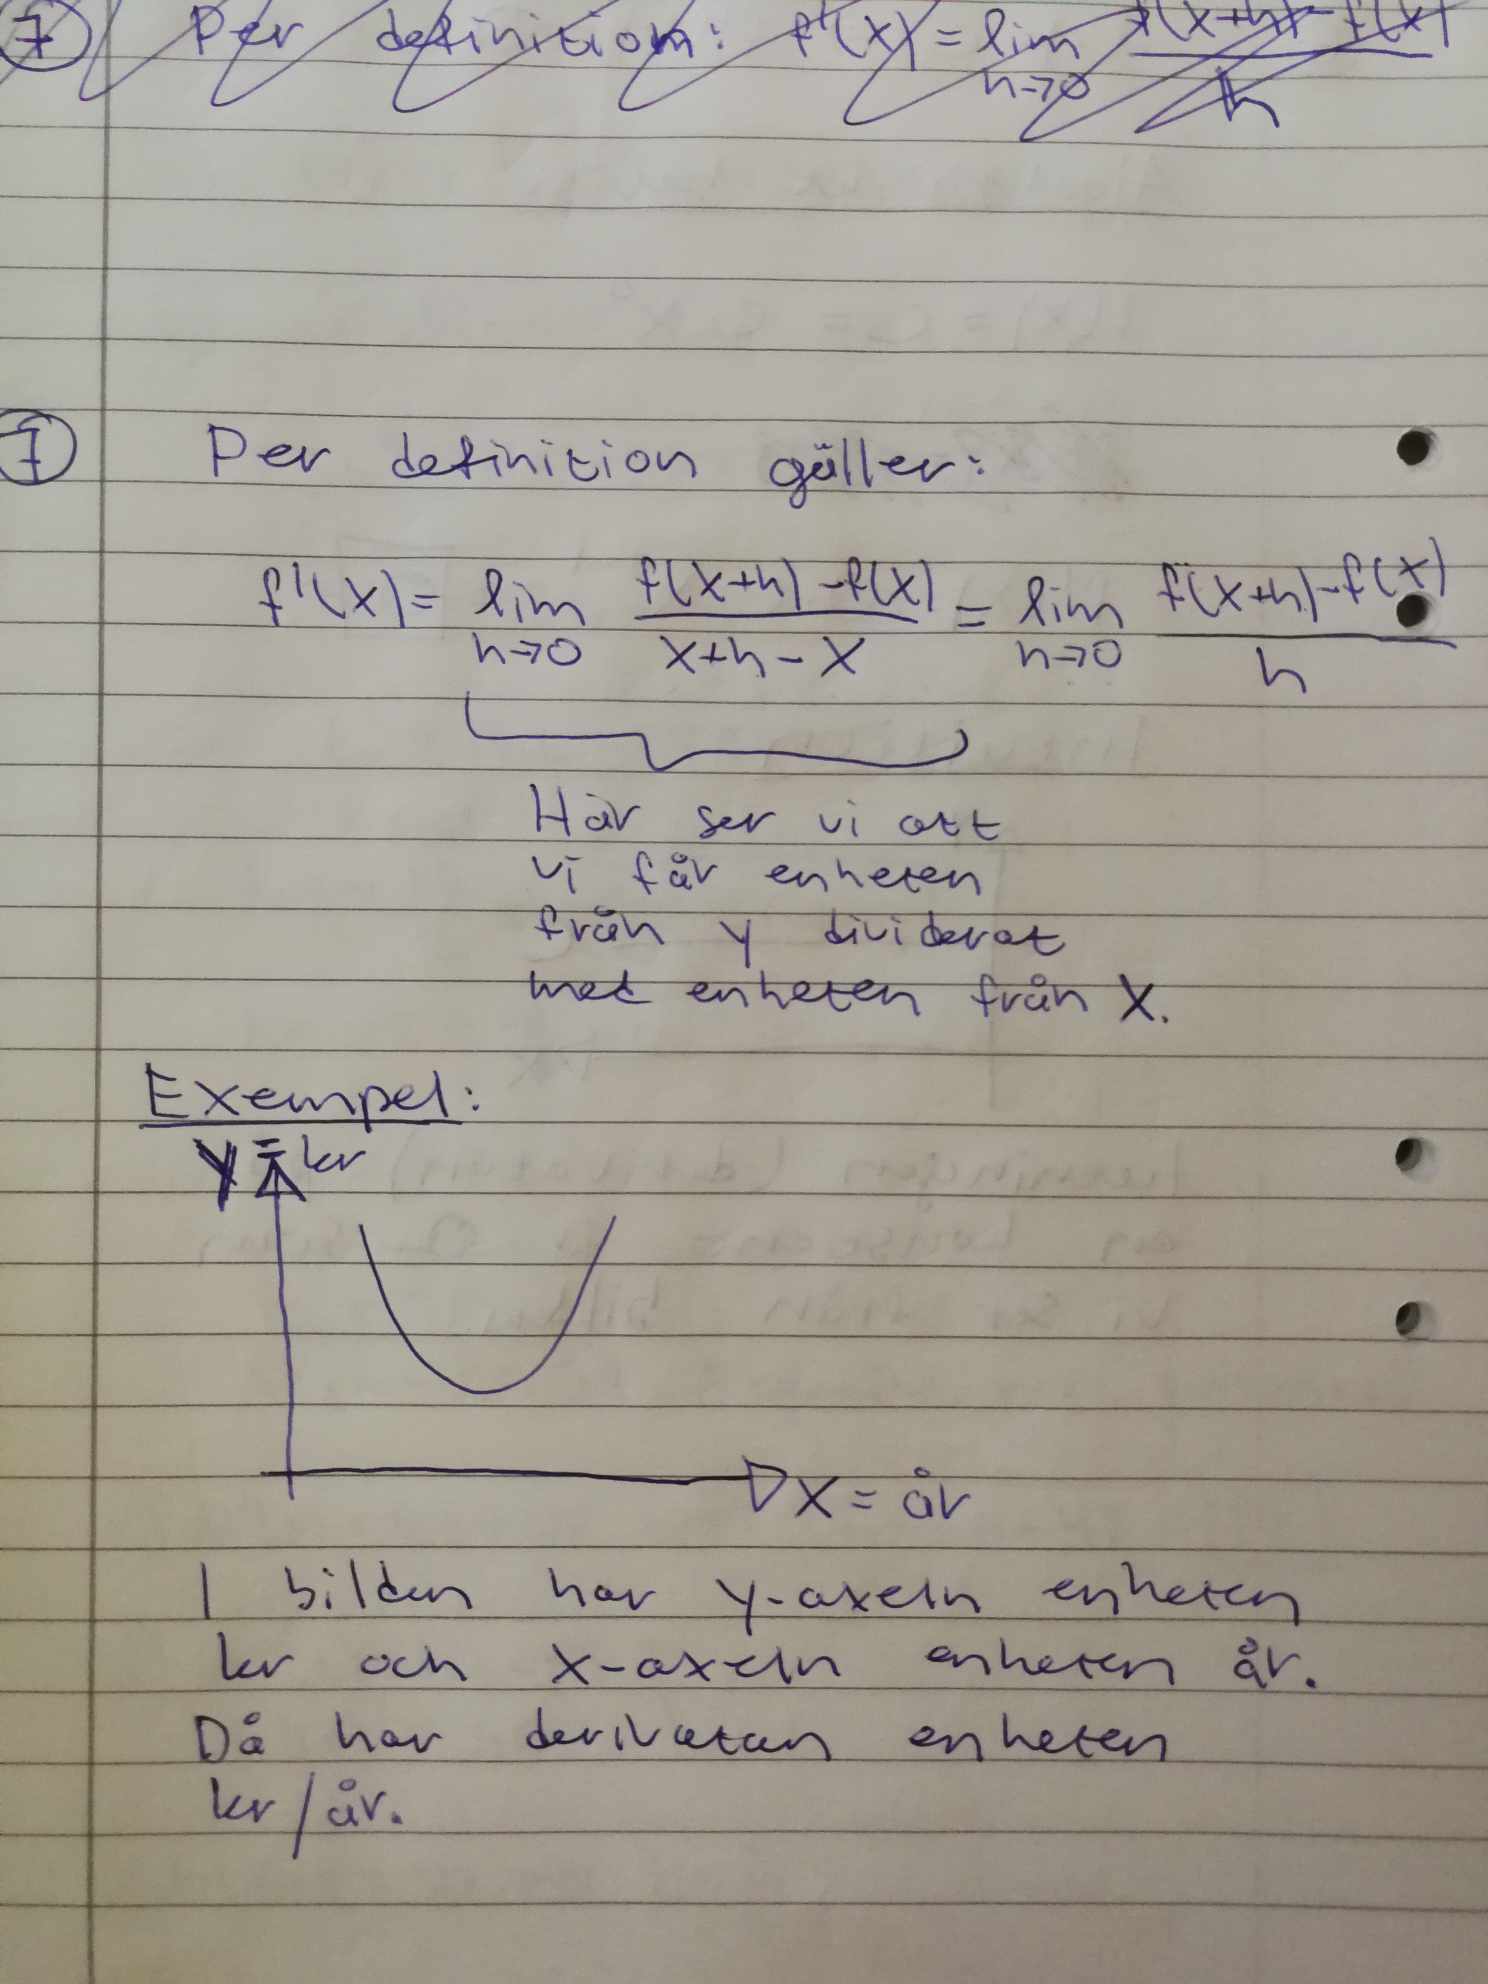 7 Per definition: f'(x) = lim h→0 f(x+h)-f(x) / h
7 Per definition gäller:
f'(x) = lim h→0 f(x+h)-f(x) / x+h-x = lim h→0 f(x+h)-f(x) / h
Här ser vi att
vi får enheten
från y dividerat
med enheten från x.
Exempel:
y = kr
x = år
I bilden har y-axeln enheten
kr och x-axeln enheten år.
Då har derivatan enheten
kr/år.